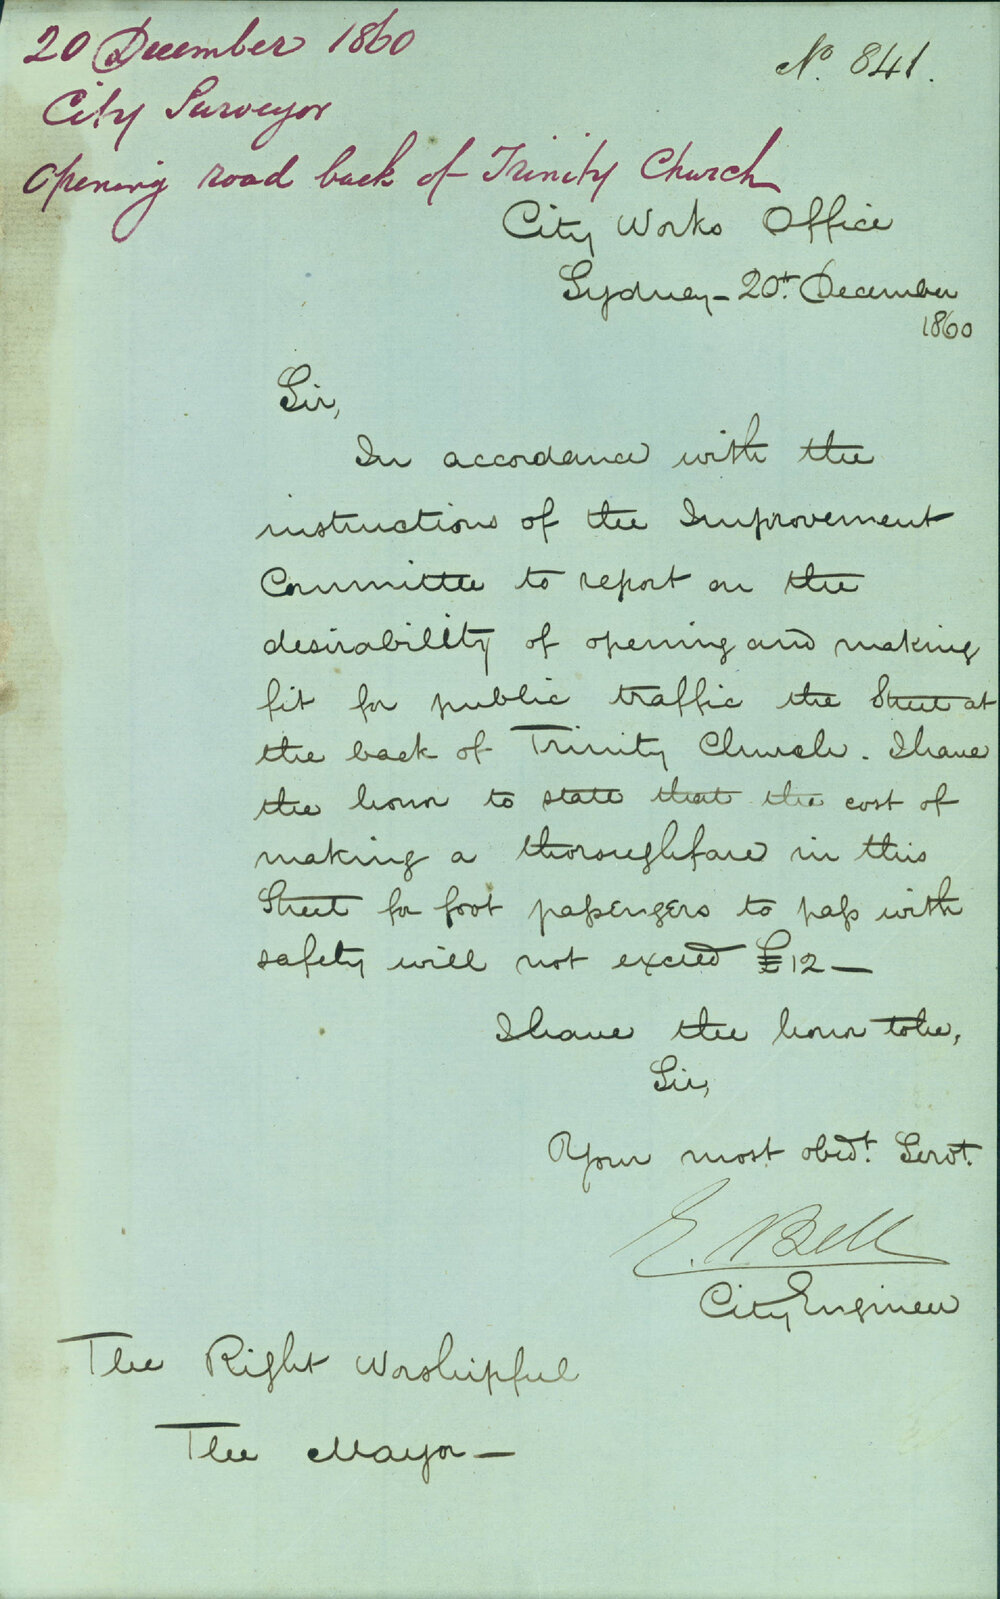 20 December 1860
No. 841.
City Surveyor
Opening road back of Trinity Church
City Works Office
Sydney - 20t. December
1860
Sir,
In accordance with the
instructions of the Improvement
Committee to report on the
desirability of opening and making
fit for public traffic the Street at
the back of Trinity Church. I have
the honor to state that the cost of
making a thoroughfare in this
Street for foot passengers to pass with
safety will not exceed £12 —
I have the honor to be,
Sir,
Your most obedt. Servt.
E. Bell
City Engineer
The Right Worshipful
The Mayor —